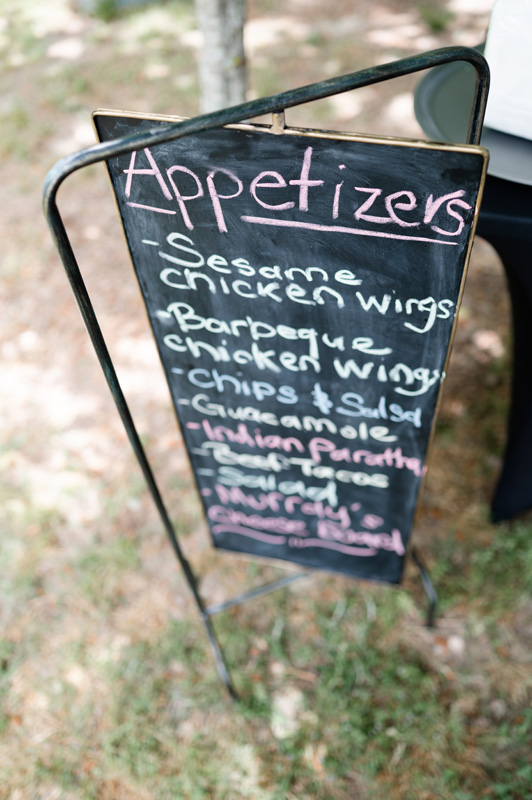 Appetizers
- Sesame
chicken wings
- Barbeque
chicken wings
- Chips & Salsa
- Guacamole
- Indian Paratha
- Beef Tacos
- Salad
- Murray's
cheese Board